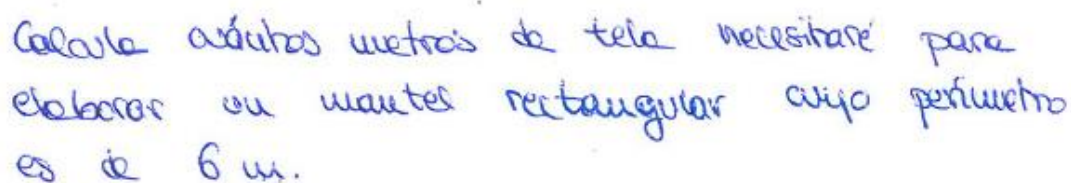 Calcula cuántos metros de tela necesitaré para
elaborar un mantel rectangular cuyo perímetro
es de 6 m.